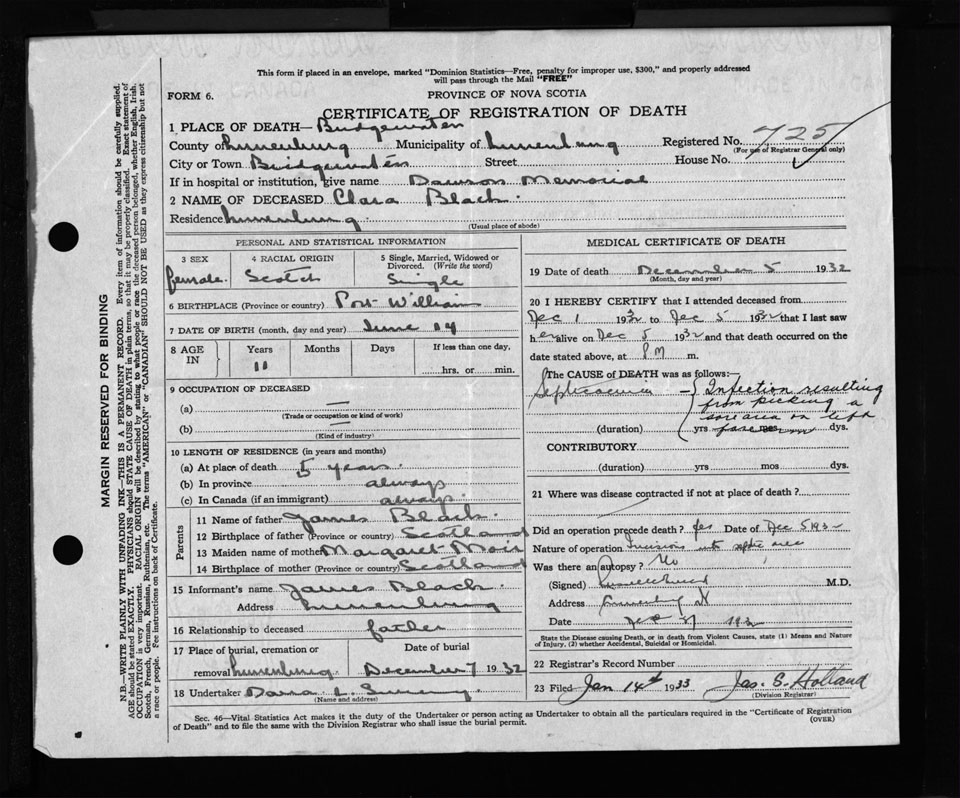 This form if placed in an envelope, marked "Dominion Statistics—Free, penalty for improper use, $300," and properly addressed
will pass through the Mail "FREE"
FORM 6.
PROVINCE OF NOVA SCOTIA
CERTIFICATE OF REGISTRATION OF DEATH
1 PLACE OF DEATH— Bridgewater
County of Lunenburg Municipality of Lunenburg Registered No. 725
(For use of Registrar General only)
City or Town Bridgewater Street House No.
If in hospital or institution, give name Dawson Memorial
2 NAME OF DECEASED Clara Black.
Residence Lunenburg
(Usual place of abode)
PERSONAL AND STATISTICAL INFORMATION
3 SEX
female.
4 RACIAL ORIGIN
Scotch
5 Single, Married, Widowed or
Divorced. (Write the word)
Single
6 BIRTHPLACE (Province or country) Port William
7 DATE OF BIRTH (month, day and year) June 14
8 AGE
IN
Years
11
Months
Days
If less than one day,
hrs. or min.
9 OCCUPATION OF DECEASED
(a) —
(Trade or occupation or kind of work)
(b) —
(Kind of industry)
10 LENGTH OF RESIDENCE (in years and months)
(a) At place of death 5 years.
(b) In province always
(c) In Canada (if an immigrant) always.
Parents
11 Name of father James Black.
12 Birthplace of father (Province or country) Scotland
13 Maiden name of mother Margaret
14 Birthplace of mother (Province or country) Scotland
15 Informant's name James Black.
Address Lunenburg
16 Relationship to deceased father
17 Place of burial, cremation or
removal Lunenburg
Date of burial
December 7 1932
18 Undertaker
(Name and address)
MEDICAL CERTIFICATE OF DEATH
19 Date of death December 5 1932
(Month, day and year)
20 I HEREBY CERTIFY that I attended deceased from
Dec 1 1932 to Dec 5 1932 that I last saw
her alive on Dec 5 1932 and that death occurred on the
date stated above, at PM m.
The CAUSE OF DEATH was as follows:
Septicaemia — { Infection resulting
from picking a
sore area on left
(duration) yrs mos dys.
CONTRIBUTORY
(duration) yrs mos dys.
21 Where was disease contracted if not at place of death?
Did an operation precede death? Yes Date of Dec 5 1932
Nature of operation Incisions into septic area
Was there an autopsy? No
(Signed) M.D.
Address Lunenburg NS
Date 1932
State the Disease causing Death, or in death from Violent Causes, state (1) Means and Nature
of Injury, (2) whether Accidental, Suicidal or Homicidal.
22 Registrar's Record Number
23 Filed Jan 14th 1933 Jas. S. Holland
(Division Registrar)
Sec. 46—Vital Statistics Act makes it the duty of the Undertaker or person acting as Undertaker to obtain all the particulars required in the "Certificate of Registration
of Death" and to file the same with the Division Registrar who shall issue the burial permit.
(OVER)
MARGIN RESERVED FOR BINDING
N.B.—WRITE PLAINLY WITH UNFADING INK—THIS IS A PERMANENT RECORD. Every item of information should be carefully supplied.
AGE should be stated EXACTLY. PHYSICIANS should STATE CAUSE OF DEATH in plain terms, so that it may be properly classified. Exact statement of
OCCUPATION is very important. RACIAL ORIGIN will be described by stating to what people or race the deceased person belonged, whether English, Irish,
Scotch, French, German, Russian, Ruthenian, etc. The terms "AMERICAN" or "CANADIAN" SHOULD NOT BE USED as they express citizenship but not
a race or people. Fee instructions on back of Certificate.